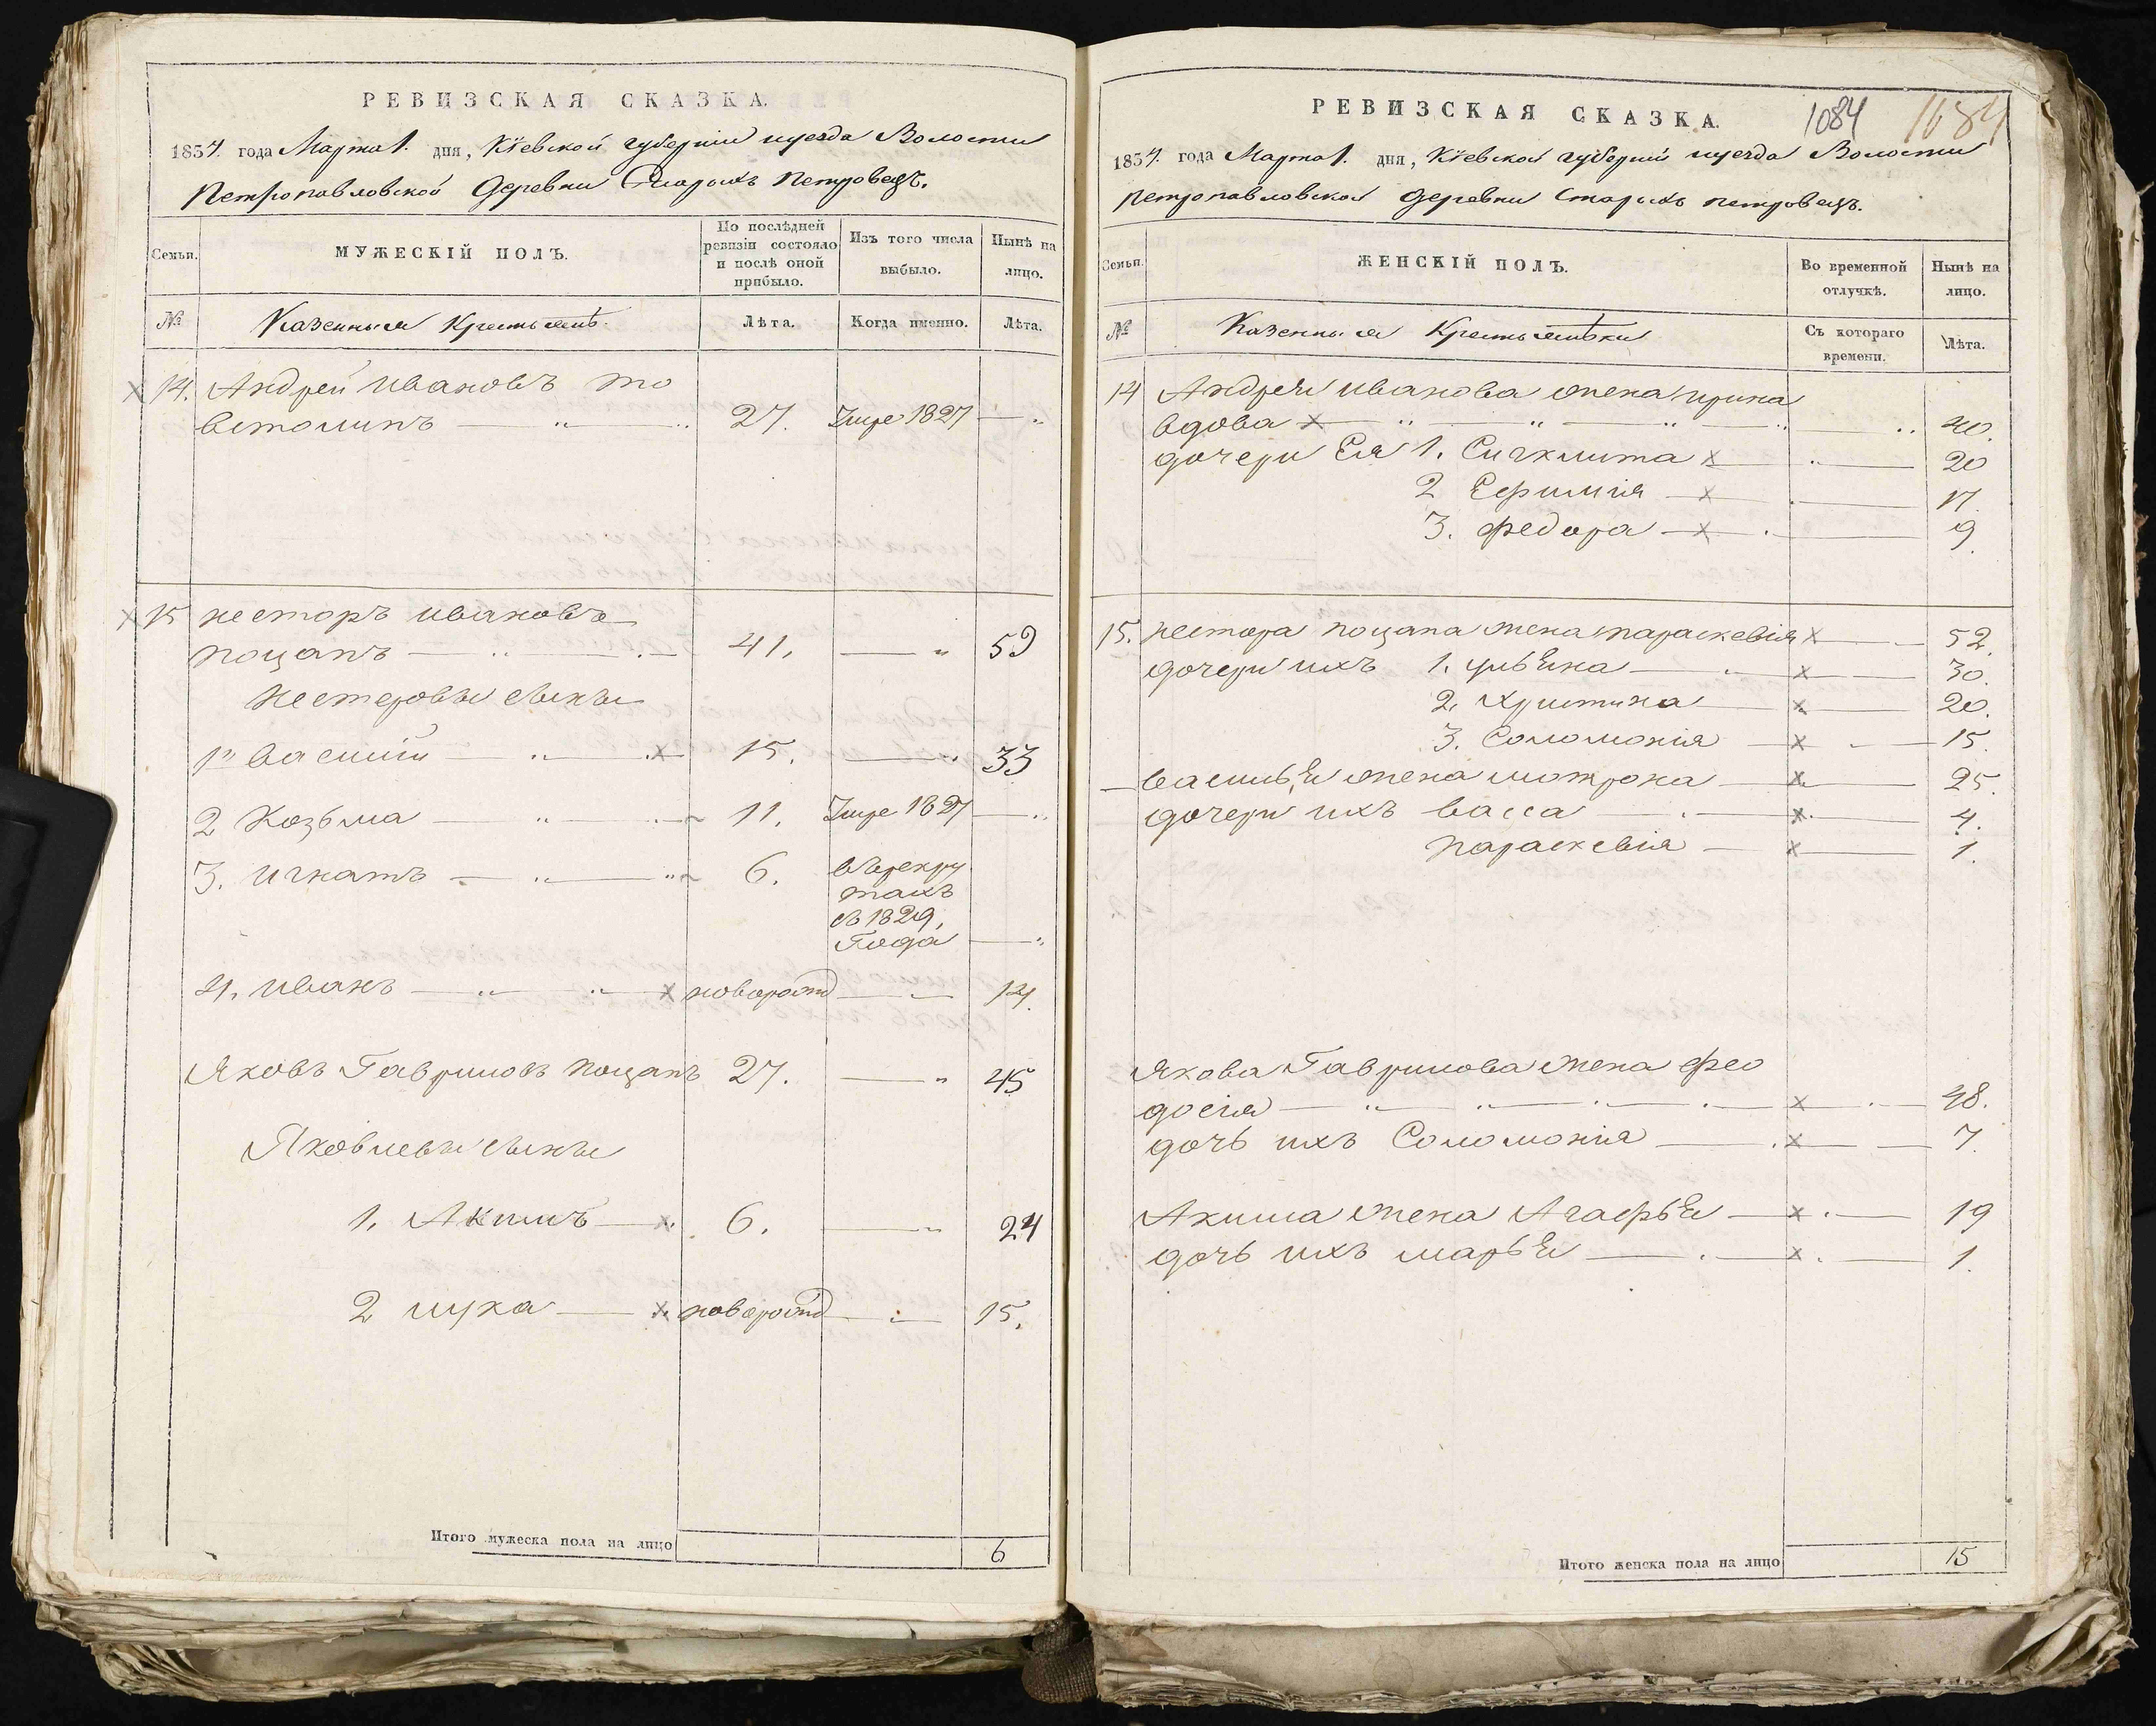 РЕВИЗСКАЯ СКАЗКА.
1834. года Марта 1. дня, Кіевской губерніи и уезда Волости
Петропавловской Деревни Старыхъ Петровецъ.
Семьи.
МУЖЕСКІЙ ПОЛЪ.
По послѣдней ревизіи состояло и послѣ оной прибыло.
Изъ того числа выбыло.
Нынѣ на лицо.
№
Казенныя Крестьянѣ.
Лѣта.
Когда именно.
Лѣта.
14. Андрей Ивановъ То
встолипъ 27. Умре 1827
15 Несторъ Ивановъ
Поцапъ 41. 59
Нестеровы сыны
1й Василій 15. 33
2 Козьма 11. Умре 1827
3. Игнатъ 6. въ рекру
тахъ
съ 1829,
Года
4. Иванъ новорожд 14.
Яковъ Гавриловъ Поцапъ 27. 45
Яковлевы сыны
1. Акимъ 6. 24
2 Лука новорожд 15.
Итого мужеска пола на лицо 6
РЕВИЗСКАЯ СКАЗКА. 1084 1084
1834. года Марта 1. дня, Кіевской губерніи и уезда Волости
Петропавловской Деревни Старыхъ Петровецъ.
Семьи.
ЖЕНСКІЙ ПОЛЪ.
Во временной отлучкѣ.
Нынѣ на лицо.
№
Казенныя Крестьянѣки
Съ котораго времени.
Лѣта.
14 Андрея Иванова жена Ирина
вдова 40.
дочери Ея 1. Сигклита 20
2 Ефимія 17.
3. Федора 9.
15. Нестора Поцапа жена Параскевія 52.
дочери ихъ 1. 30.
2. Христина 20.
3. Соломонія 15.
Василья жена Мотрона 25.
дочери ихъ Васса 4.
Параскевія 1.
Якова Гаврилова жена Фео
досія 48.
дочь ихъ Соломонія 7.
Акима жена Агафья 19
дочь ихъ Марья 1.
Итого женска пола на лицо 15